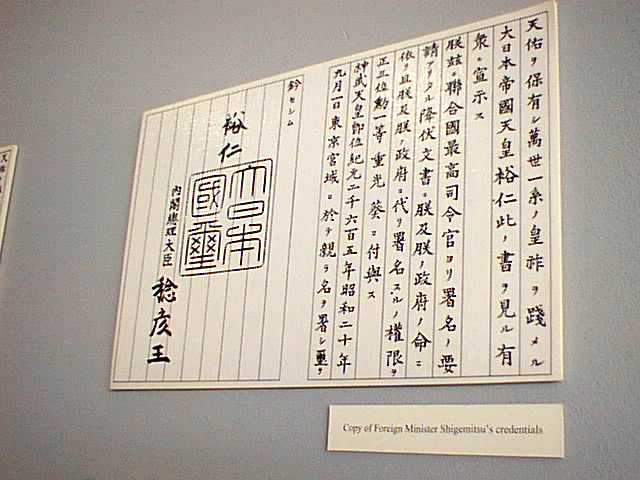 天佑ヲ保有シ萬世一系ノ皇祚ヲ踐メル
大日本帝國天皇裕仁此ノ書ヲ見ル有
衆ニ宣示ス
朕茲ニ聯合國最高司令官ヨリ署名ノ要
請アリタル降伏文書ニ朕及朕ノ政府ノ命ニ
依リ且朕及朕ノ政府ニ代リ署名スルノ權限ヲ
正三位勲一等重光葵ニ付與ス
神武天皇卽位紀元二千六百五年昭和二十年
九月一日東京宮城ニ於テ親ラ名ヲ署シ璽ヲ
鈐セシム
裕仁
大日本
國璽
内閣總理大臣 稔彦王
Copy of Foreign Minister Shigemitsu's credentials